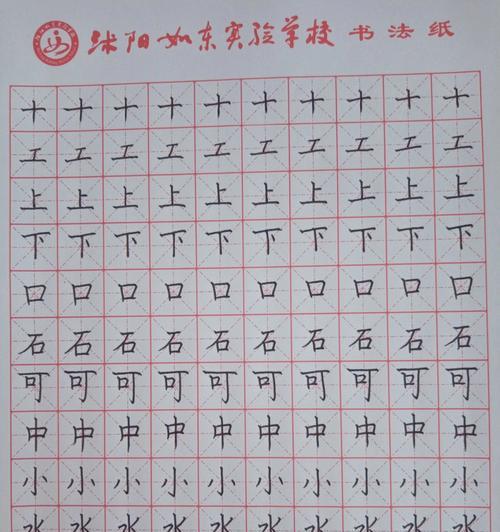 沭阳如东实验学校 书法纸
十十十十十十十十十十
工工工工工工工工工工
上上上上上上上上上上
下下下下下下下下下下
口口口口口口口口口口
石石石石石石石石石石
可可可可可可可可可可
中中中中中中中中中中
小小小小小小小小小小
水水水水水水水水水水